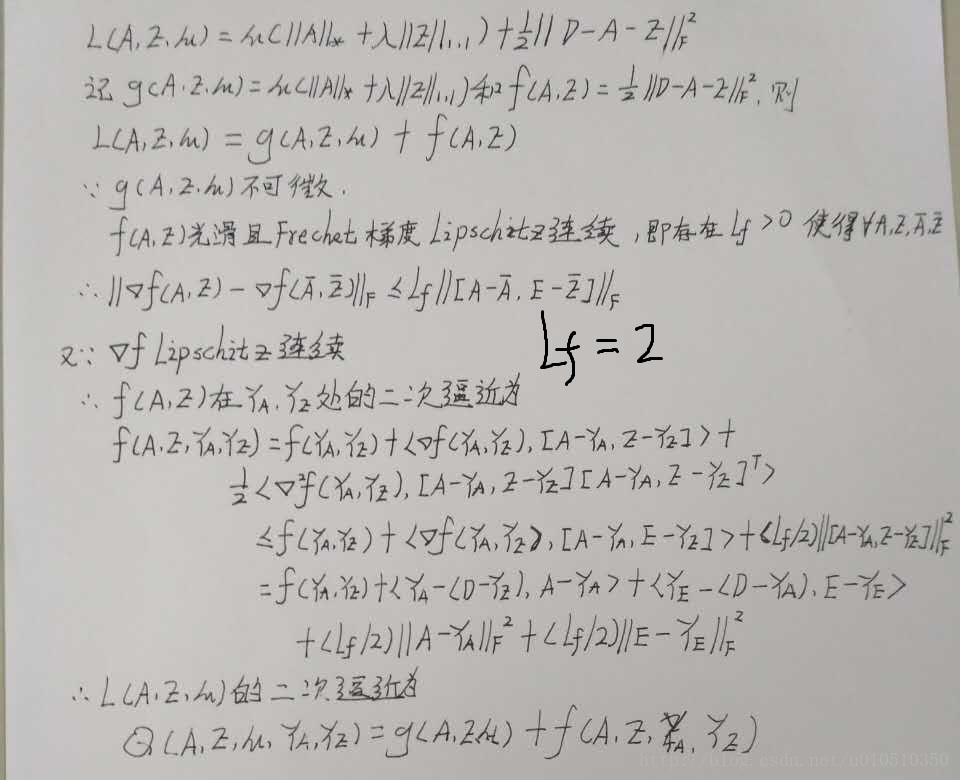 L(A,Z,μ) = μ(||A||* + λ||Z||1,1) + 1/2||D-A-Z||F^2
记 g(A,Z,μ) = μ(||A||* + λ||Z||1,1)和 f(A,Z) = 1/2||D-A-Z||F^2, 则
L(A,Z,μ) = g(A,Z,μ) + f(A,Z)
∵ g(A,Z,μ)不可微.
f(A,Z)光滑且Frechet梯度Lipschitz连续, 即存在Lf>0 使得∀A,Z,Ā,Z̄
∴ ||∇f(A,Z) - ∇f(Ā,Z̄)||F ≤ Lf||[A-Ā, E-Z̄]||F
Lf = 2
又∵ ∇f Lipschitz连续
∴ f(A,Z)在YA,YZ处的二次逼近为
f(A,Z,YA,YZ) = f(YA,YZ) + <∇f(YA,YZ), [A-YA, Z-YZ]> +
1/2<∇²f(YA,YZ), [A-YA, Z-YZ][A-YA, Z-YZ]^T>
≤ f(YA,YZ) + <∇f(YA,YZ), [A-YA, E-YZ]> + (Lf/2)||[A-YA, Z-YZ]||F^2
= f(YA,YZ) + <YA-(D-YZ), A-YA> + <YE-(D-YA), E-YE>
+ (Lf/2)||A-YA||F^2 + (Lf/2)||E-YE||F^2
∴ L(A,Z,μ)的二次逼近为
Q(A,Z,μ,YA,YZ) = g(A,Z,μ) + f(A,Z,YA,YZ)
http://blog.csdn.net/u010510350